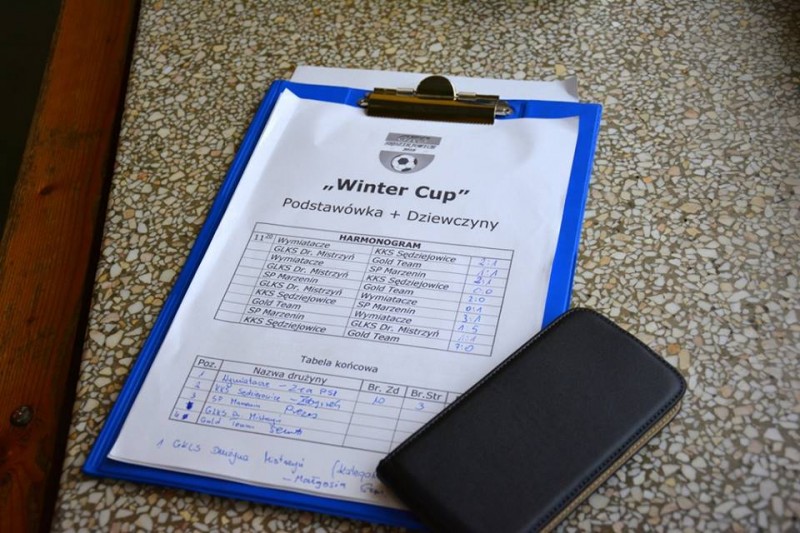 „Winter Cup”
Podstawówka + Dziewczyny
HARMONOGRAM
11²⁰ Wymiatacze KKS Sędziejowice 2:1
GLKS Dr. Mistrzyń Gold Team 1:1
Wymiatacze SP Marzenin 2:1
GLKS Dr. Mistrzyń KKS Sędziejowice 0:0
SP Marzenin Gold Team 2:0
GLKS Dr. Mistrzyń Wymiatacze 0:1
KKS Sędziejowice SP Marzenin 3:1
Gold Team Wymiatacze 1:5
SP Marzenin GLKS Dr. Mistrzyń
KKS Sędziejowice Gold Team 7:0
Tabela końcowa
Poz. Nazwa drużyny Br. Zd Br.Str
1 Wymiatacze 10 3
2 KKS Sędziejowice
3 SP Marzenin
4 GLKS Dr. Mistrzyń
Gold Team
1 GKLS
- Małgosia